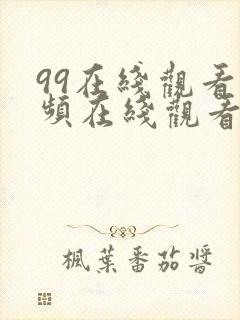 99在綫觀看
頻在綫觀看
楓葉番茄醬